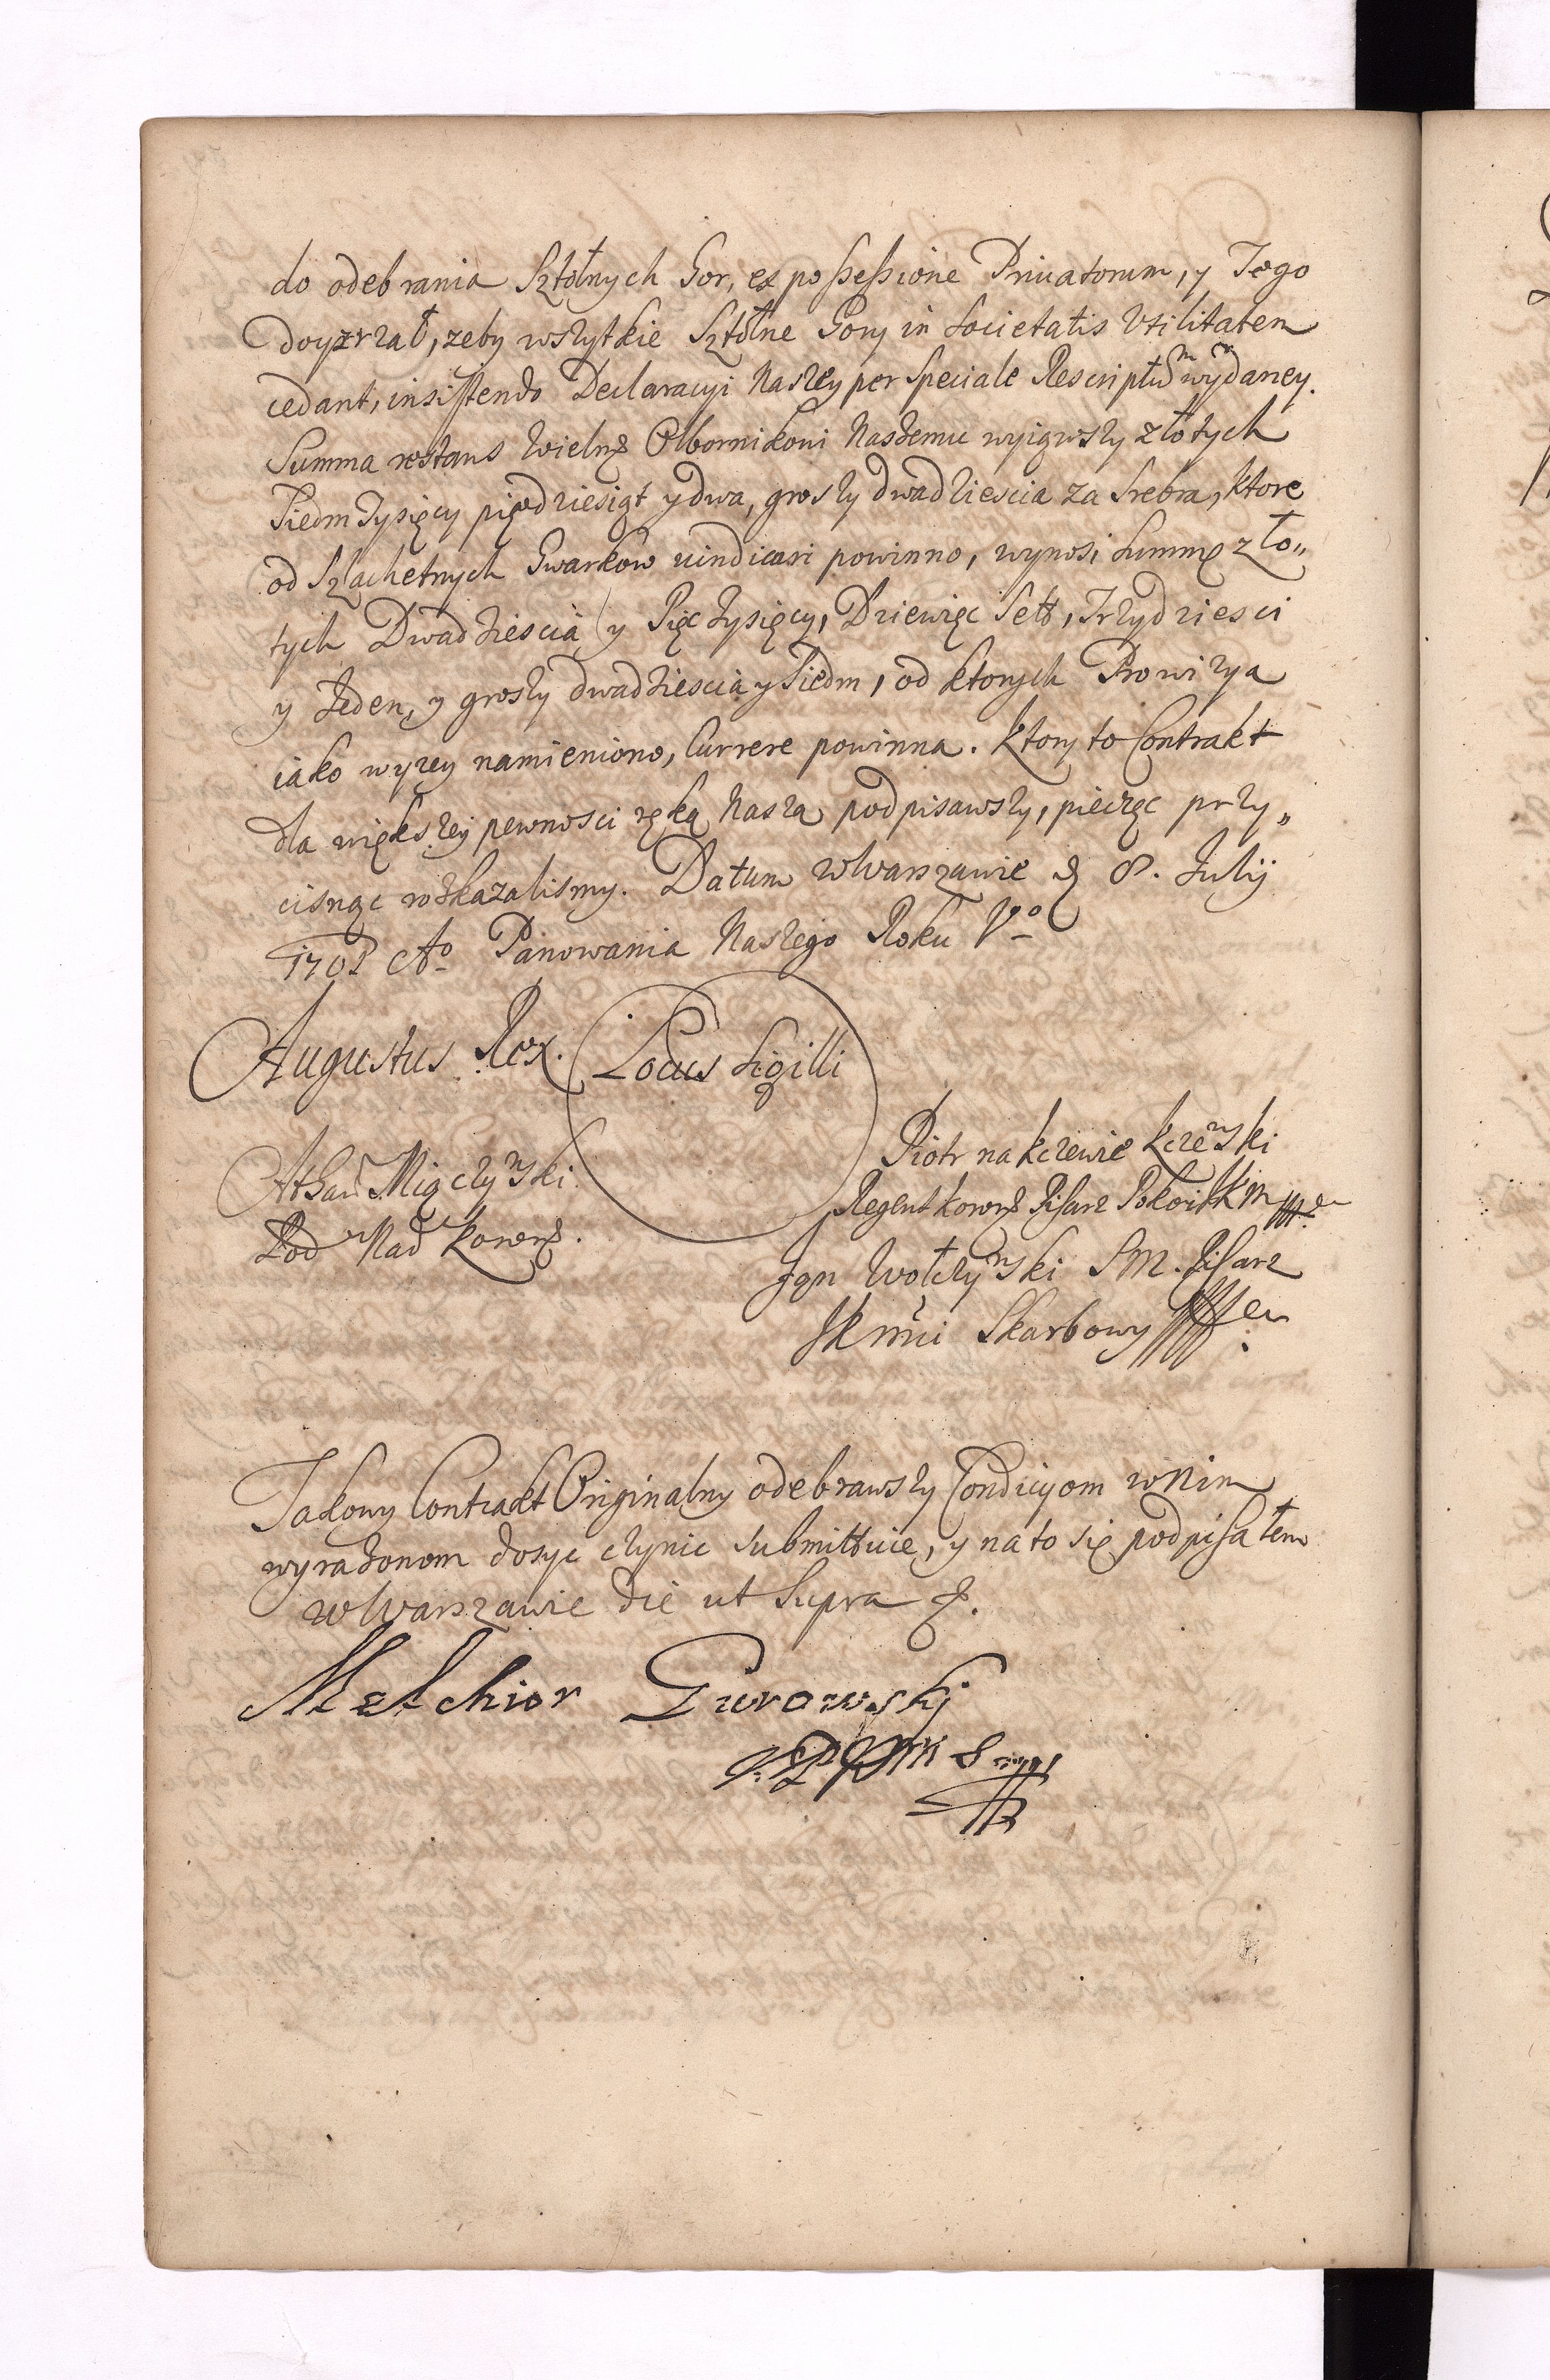 do odebrania Sztolnych Gor, ex possessione Privatorum, y Tego
doyzrzał, zeby wszytkie Sztolne Gory in Societatis Vtilitatem
cedant, insistendo Declaracyi Naszey per Speciale Rescriptum wydaney.
Summa restans Wielnę Olbornikowi Naszemu wyiąwszy złotych
Siedm Tysięcy pięcdziesiąt y dwa, groszy dwadziescia za Srebra, ktore
od Szlachetnych Gwarkow vindicari powinno, wynosi Summę zło„
tych Dwadziescia y Pięc tysięcy, Dziewięc Sett, Trzydziesci
y Jeden, y groszy dwadziescia y Siedm, od ktorych Prowizya
iako wyzey namieniono, Currere powinna. Ktory to Contrakt
dla większey pewnosci ręką Naszą podpisawszy, pieczęc przy„
cisnąc roskazalismy. Datum w Warszawie d 8. Julij
1702 Ao Panowania Naszego Roku Vo
Augustus Rex. Locus Sigilli
Athan Miączynski
Pod Nad Koronę.
Piotr na Kczewie Kczewski
Regent Koronę Pisarz Pokoi JKM
Jan Wołczynski S M. Pisarz
JKMci Skarbowy
Takowy Contrakt Originalny odebrawszy Condicyom w Nim
wyrazonom dosyc czynic submittuie, y na to się podpisałem
w Warszawie die ut Supra
Melchior Gurowskj